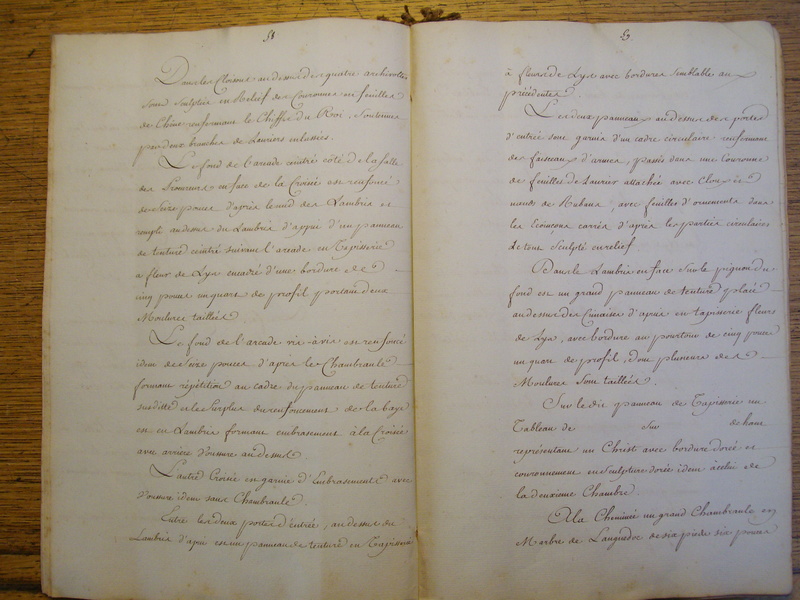 58
Dans les Cloisons au dessus des quatre archivoltes
sont sculptés en Relief des Couronnes en feuilles
de Chêne renfermant le Chiffre du Roi, soutenues
par deux branches de Lauriers enlassées.
Le fond de l'arcade cointré côté de la salle
des Procureurs en face de la Croisée est renfoncé
de seize pouces d'après le nud des Lambris et
rempli au dessus du Lambris d'appui d'un panneau
de tenture ceintré suivant l'arcade en Tapisserie
a fleur de Lys encadré d'une bordure de
cinq pouces un quart de profil portant deux
Moulures taillées
Le fond de l'arcade vis-à-vis est renfoncé
idem de seize pouces d'après le Chambranle
formant répétition au cadre du panneau de tenture
susdit et le surplus du renfoncement de la baye
est en Lambris formant embrasement à la Croisée
avec arrière voussure au dessus
L'autre Croisée est garnie d'Embrasements avec
voussure idem sans Chambranle.
Entre les deux portes d'entrée, au dessus du
Lambris d'apui est un panneau de tenture en Tapisserie
59
à fleurs de Lys avec bordures semblable aux
précédentes
Les deux panneaux au dessus des portes
d'entrée sont garnis d'un cadre circulaire renfermant
des faisceaux d'armes, passés dans une Couronne
de feuilles de Laurier attachée avec Cloux et
nœuds de Rubans, avec feuilles d'ornements dans
les Ecoinçons carrés d'après les parties circulaires
Le tout Sculpté en relief
Dans le Lambris en face sur le pignon du
fond est un grand panneau de tenture placé
au dessus des Cimaises d'apui en tapisserie fleurs
de Lys, avec bordure au pourtour de cinq pouces
un quart de profil, dont plusieurs des
Moulures sont taillées.
Sur le dit panneau de Tapisserie un
Tableau de sur de haut
représentant un Christ avec bordure dorée et
couronnement en sculpture dorée idem à celui de
la deuxieme Chambre.
A la Cheminée un grand Chambranle en
Marbre de Languedoc de six pieds six pouces